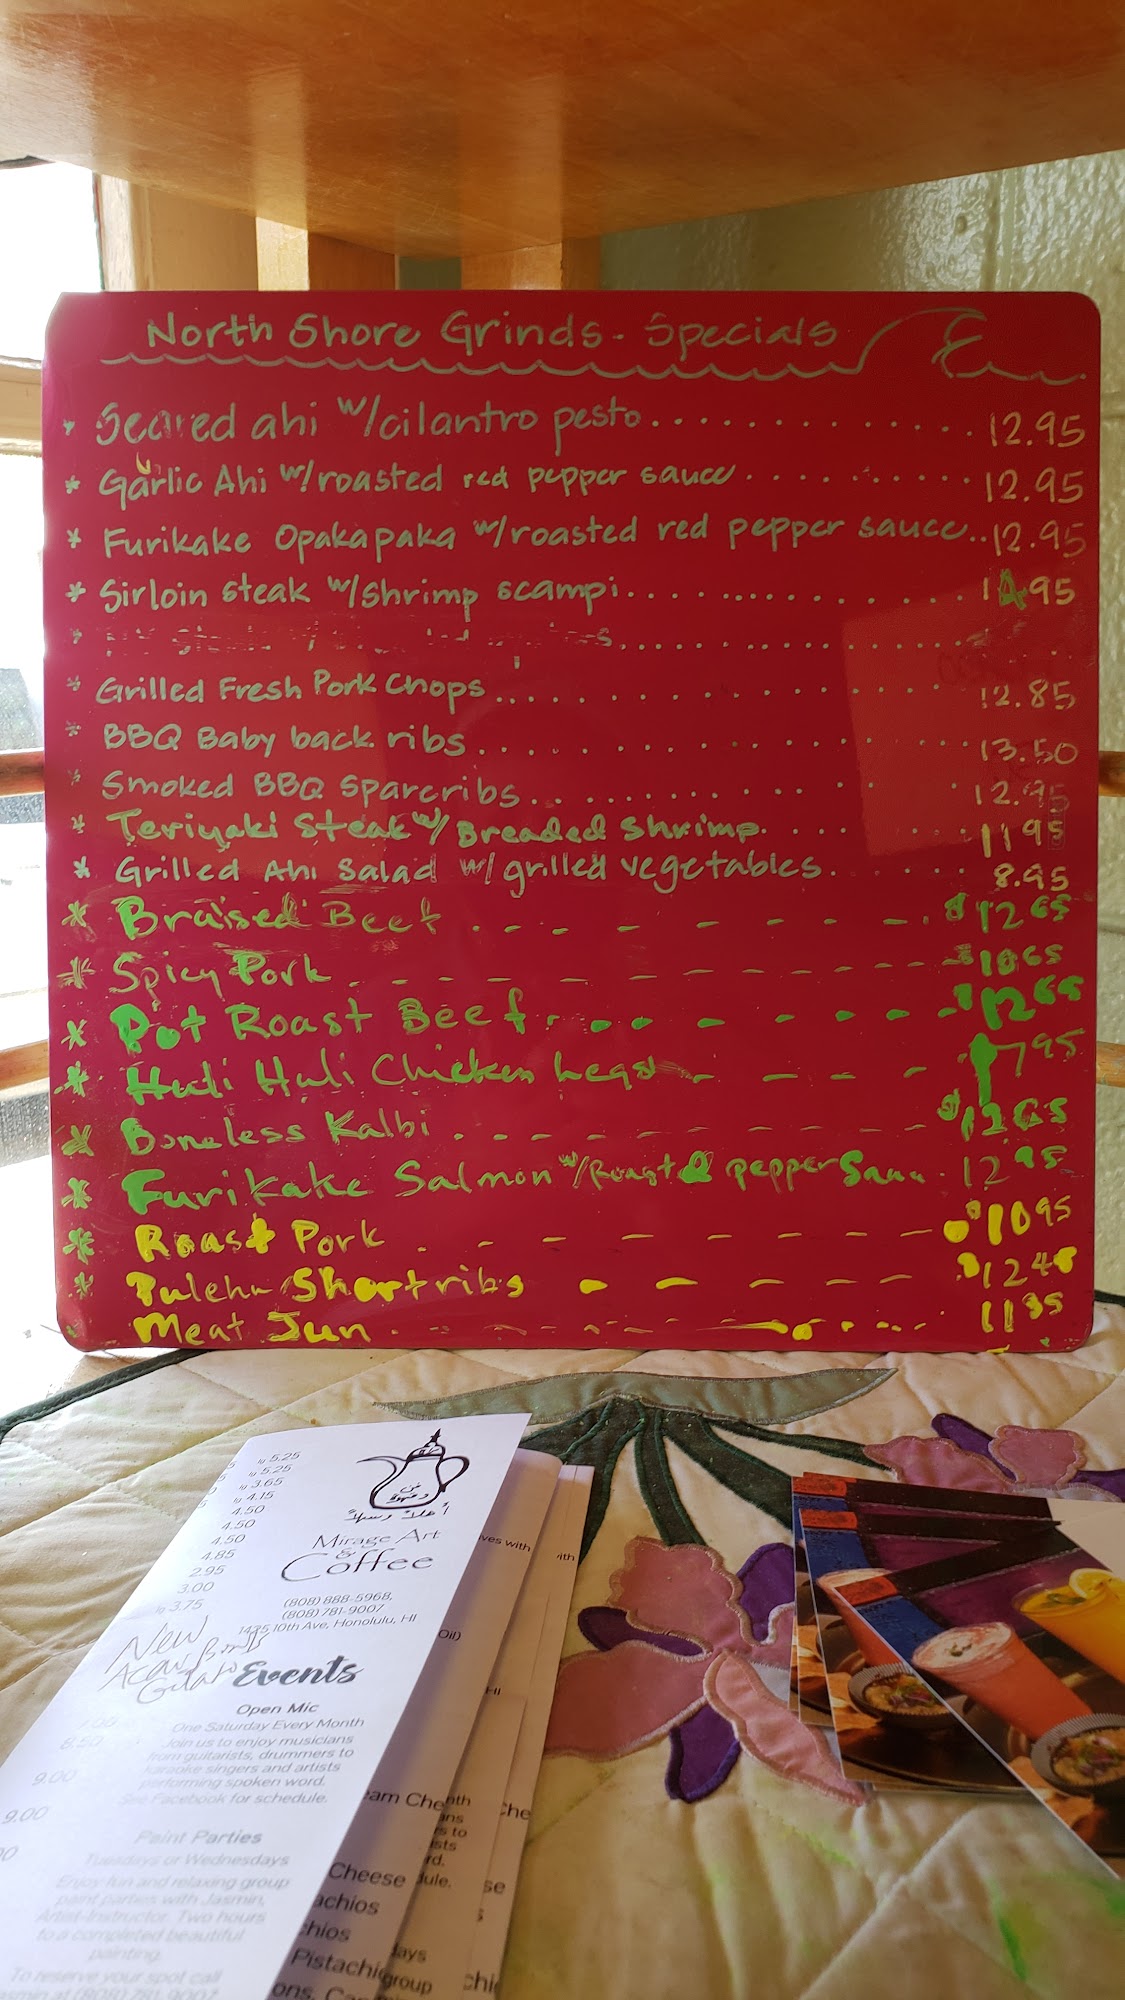 North Shore Grinds - Specials
* Seared ahi w/cilantro pesto.............. 12.95
* Garlic Ahi w/roasted red pepper sauce.......... 12.95
* Furikake Opakapaka w/roasted red pepper sauce.. 12.95
* Sirloin steak w/shrimp scampi................ 14.95
* Grilled Fresh Pork Chops................ 12.85
* BBQ Baby back ribs................ 13.50
* Smoked BBQ Spareribs.......... 12.95
* Teriyaki Steak w/ Breaded Shrimp....... 11 95
* Grilled Ahi Salad w/ grilled vegetables...... 8.95
* Braised Beef . - - - - - - - $12 65
* Spicy Pork - - - - - - - - - $10 65
* Pot Roast Beef . - - - - - - - $12 65
* Huli Huli Chicken Legs - - - - 7 95
* Boneless Kalbi . - - - - - - - - $12 65
* Furikake Salmon w/Roasted pepper 12 95
* Roast Pork . - - - - - - - - $10 95
* Pulehu Shortribs - - - - - $12
Meat Jun . - - - - - - - . . . . 11
5.25
5.25
3.65
4.15
4.50
4.50
4.50
4.85
2.95
3.00
3.75
أهلاً وسهلاً
Mirage Art
&
Coffee
(808) 888-5968,
(808) 781-9007
1435 10th Ave, Honolulu, HI
New
Acai Bowls
Gelato
Events
Open Mic
One Saturday Every Month
Join us to enjoy musicians
from guitarists, drummers to
karaoke singers and artists
performing spoken word.
See Facebook for schedule.
7.00
8.50
9.00
9.00
Paint Parties
Tuesdays or Wednesdays
Enjoy fun and relaxing group
paint parties with Jasmin,
Artist-Instructor. Two hours
to a completed beautiful
painting.
To reserve your spot call
Jasmin at (808) 781-9007
ves with
ith
Oil)
HI
Cheese
dule.
Pistachi
group